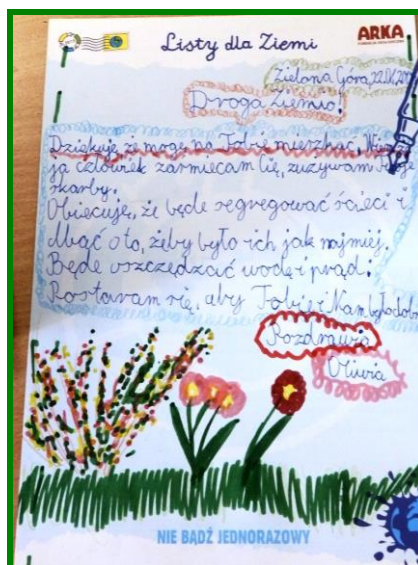 Listy dla Ziemi
ARKA
Zielona Góra, 22.04.20
Droga Ziemio!
Dziękuję, że mogę na Tobie mieszkać.
ja człowiek zaśmiecam Cię, zużywam
skarby.
Obiecuję, że będe segregować śmieci i
dbać o to, żeby było ich jak najmniej.
Będe oszczędzać wodę i prąd.
Postaram się, aby Tobie i Nam było dobrze
Pozdrawia
Oliwia
NIE BĄDŹ JEDNORAZOWY